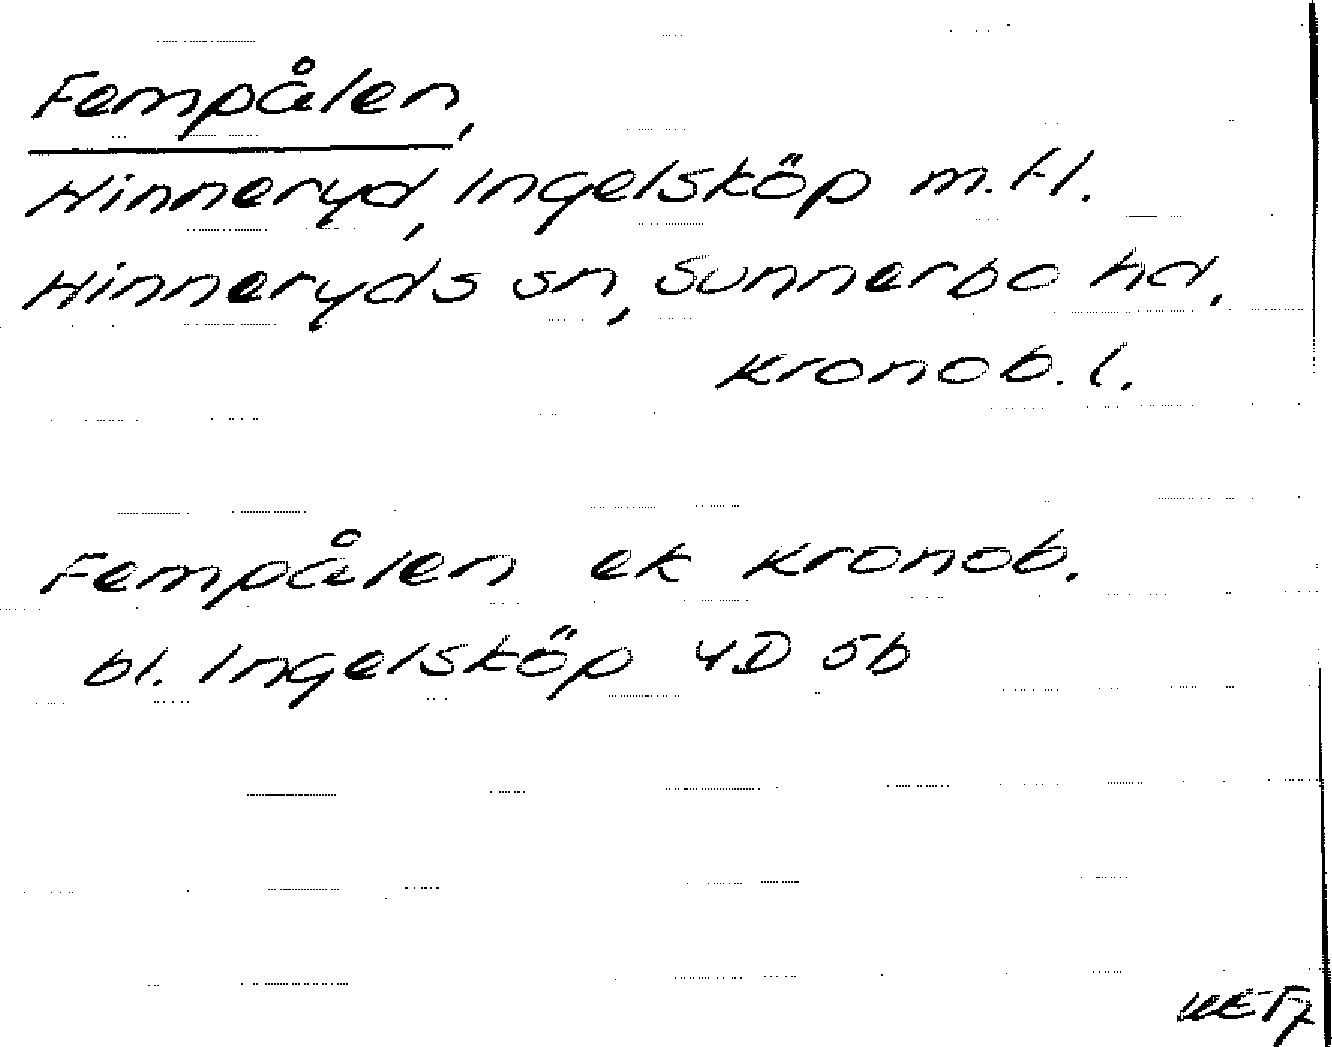 Fempålen,
Hinneryd, Ingelsköp m.fl.
Hinneryds sn, Sunnerbo hd,
Kronob. l.
Fempålen ek Kronob.
bl. Ingelsköp 4D 5b